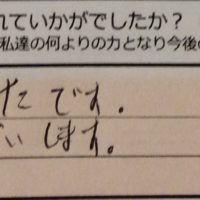 れていかがでしたか？
私達の何よりの力となり今後の
たです.
います。